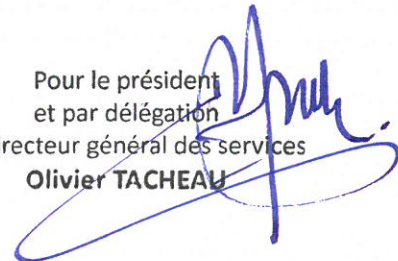 Pour le président
et par délégation
irecteur général des services
Olivier TACHEAU